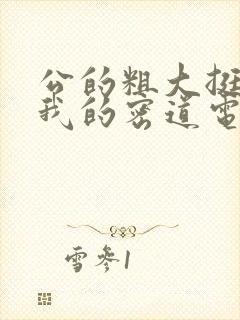 公的粗大挺
我的密道电
雪参1